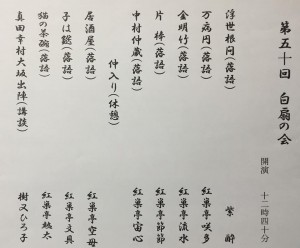 第五十回 白扇の会
開演 十二時四十分
浮世根問(落語) 紫 酔
万病円(落語) 紅巣亭咲多
金明竹(落語) 紅巣亭流水
片 棒(落語) 紅巣亭節節
中村仲蔵(落語) 紅巣亭宙心
仲入り(休憩)
居酒屋(落語) 紅巣亭空母
子は鎹(落語) 紅巣亭文具
猫の茶碗(落語) 紅巣亭鮑太
真田幸村大坂出陣(講談) 樹又ひろ子